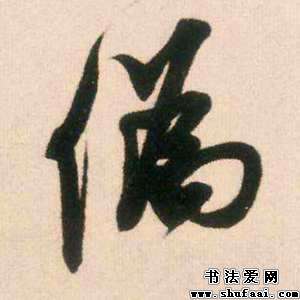 偽
书法爱网
www.shufaai.com